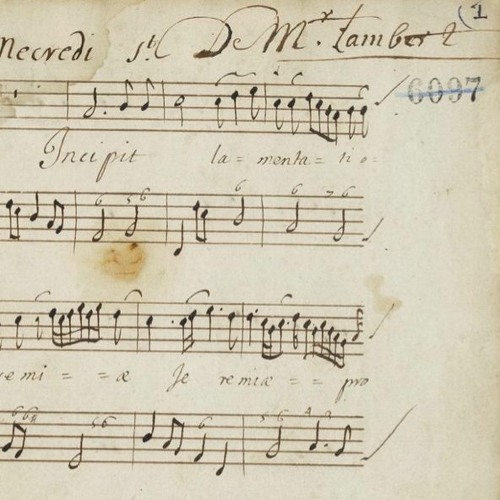 Mecredi St. De Mr. Lambert
(1
6097
Incipit la = menta = ti o =
6 5 6 6 6 7 6
re mi = = æ Je remiæ = = pro
6 6# 5 6 5 6 4